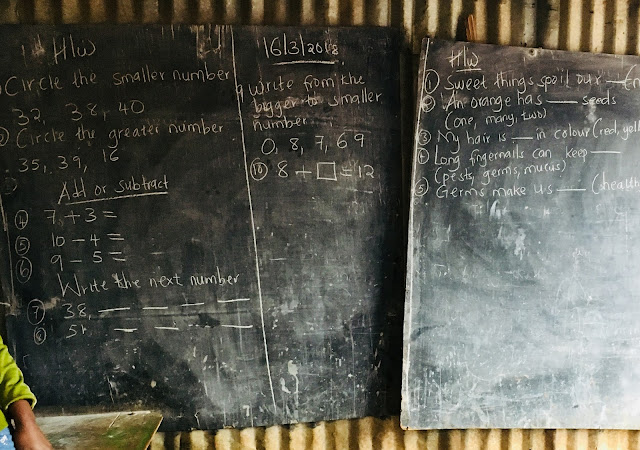 H/W
Circle the smaller number
32, 38, 40
② Circle the greater number
35, 39, 16
Add or subtract
④ 7 + 3 =
⑤ 10 - 4 =
⑥ 9 - 5 =
Write the next number
⑦ 38, __ __ __ __
⑧ 51 __ __ __ __
16/3/2018
9 Write from the
bigger to smaller
number.
0, 8, 7, 6 9
⑩ 8 + □ = 12
H/W
① Sweet things spoil our __
② An orange has __ seeds
(one, many, two)
③ My hair is __ in colour (red, yell
④ Long fingernails can keep __
(pests, germs, mucus)
⑤ Germs make us __ (health